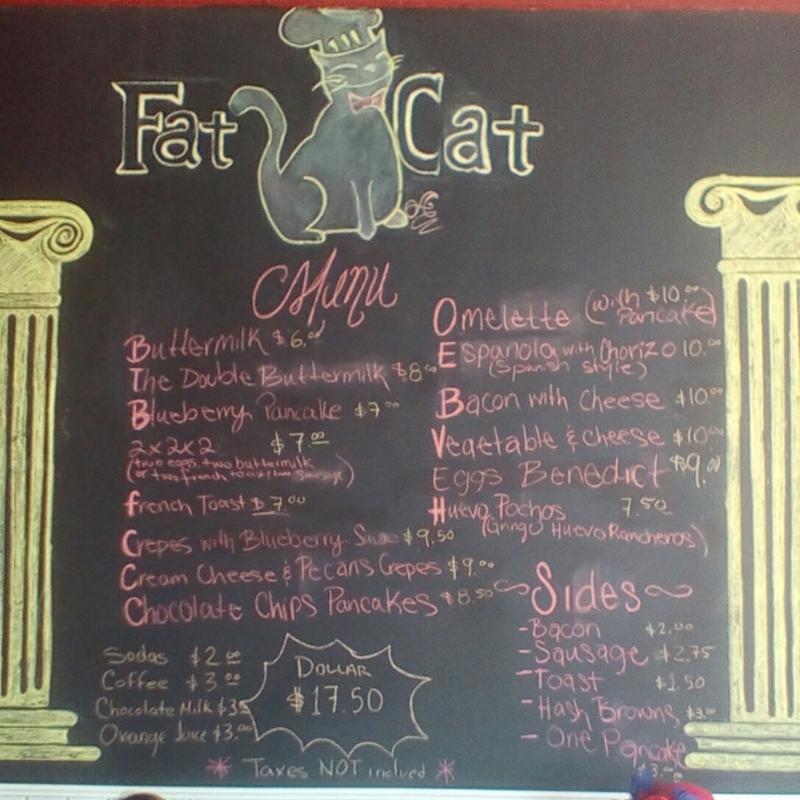 Fat Cat
Menu
Buttermilk $6.00
The Double Buttermilk $8.00
Blueberry Pancake $7.00
2x2x2 $7.00
(two eggs, two buttermilk
or two french toast two Sausage)
french Toast $7.00
Crepes with Blueberry $9.50
Cream Cheese & Pecans Crepes $9.00
Chocolate Chips Pancakes $8.50
Sodas $2.00
Coffee $3.00
Chocolate Milk
Orange Juice $3.00
DOLLAR
$17.50
* Taxes NOT inclued *
Omelette (with $10.00
Pancake)
Espanola with Chorizo 10.00
(Spanish style)
Bacon with Cheese $10.00
Vegetable & Cheese $10.00
Eggs Benedict $9.00
Huevo Pochos 7.50
(Gringo Huevo Rancheros)
Sides
- Bacon $2.00
- Sausage $2.75
- Toast $1.50
- Hash Browns $3.00
- One Pancake
$3.00